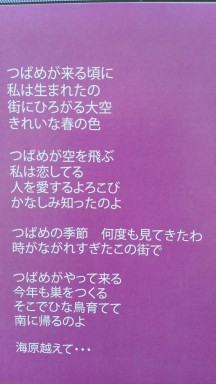 つばめが来る頃に
私は生まれたの
街にひろがる大空
きれいな春の色
つばめが空を飛ぶ
私は恋してる
人を愛するよろこび
かなしみ知ったのよ
つばめの季節　何度も見てきたわ
時がながれすぎたこの街で
つばめがやって来る
今年も巣をつくる
そこでひな鳥育てて
南に帰るのよ
海原越えて・・・